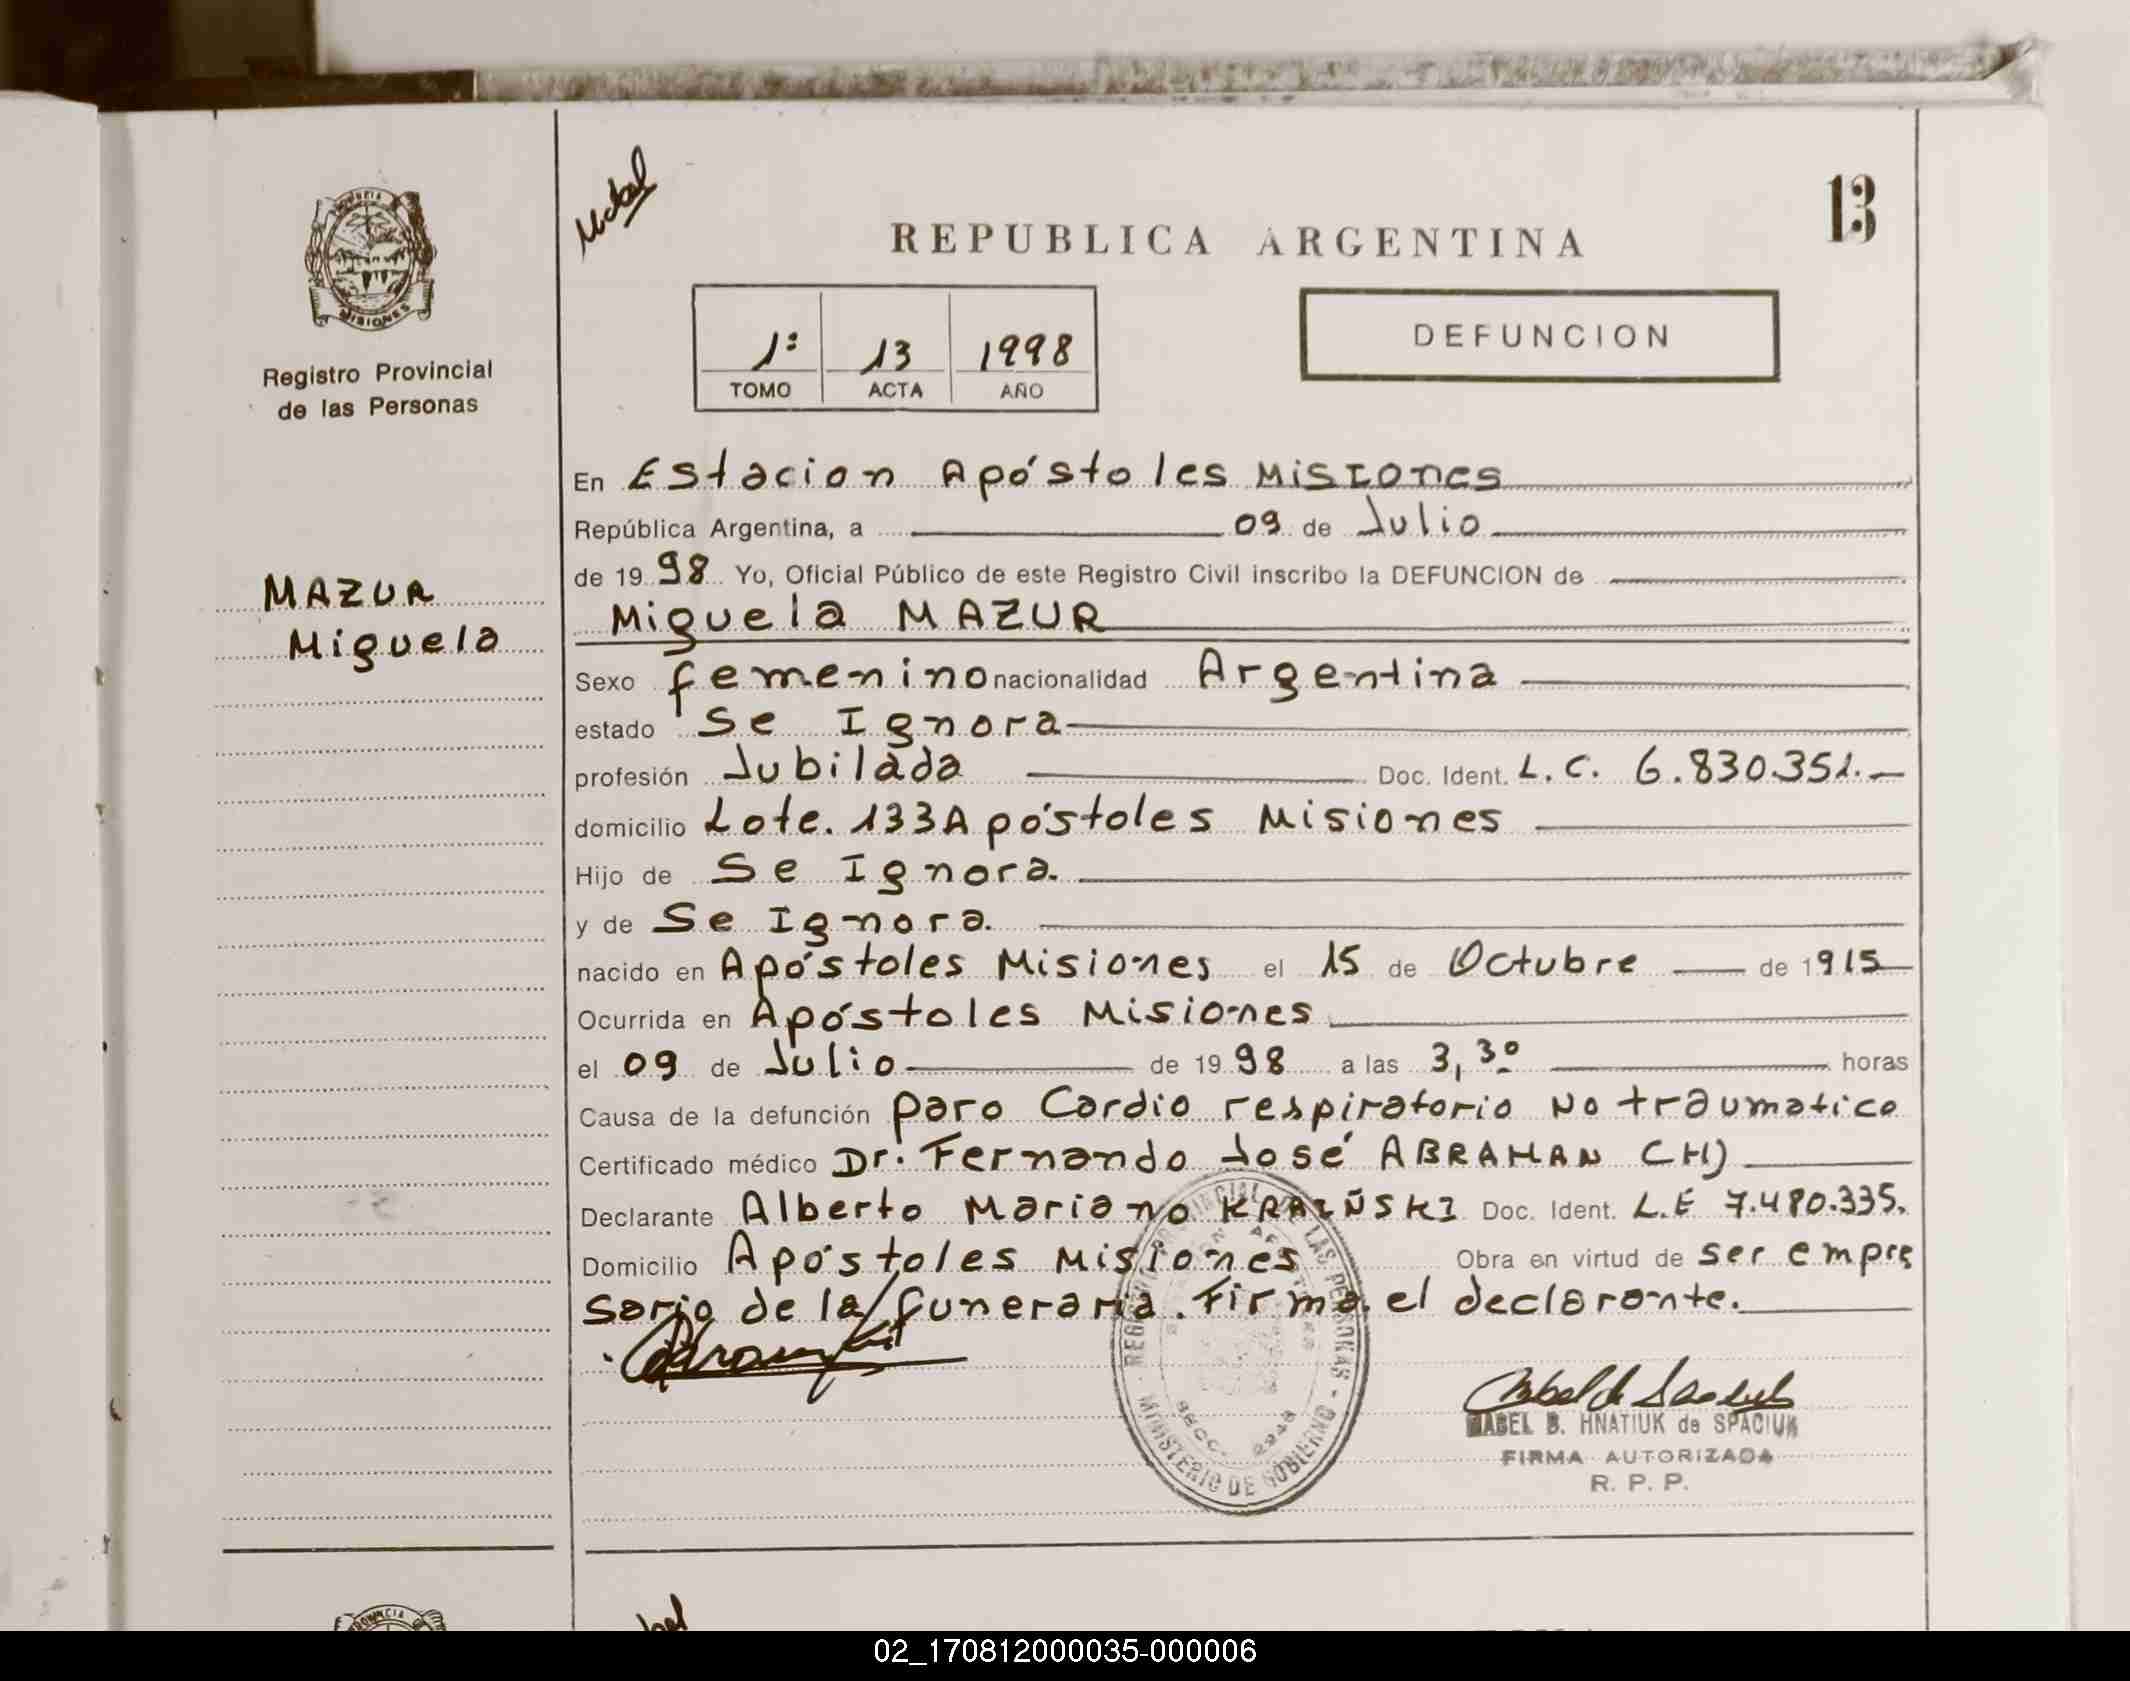 Mabel
13
REPUBLICA ARGENTINA
1º 13 1998
TOMO ACTA AÑO
DEFUNCION
PROVINCIA
MISIONES
Registro Provincial
de las Personas
MAZUR
Miguela
En Estacion Apóstoles Misiones
República Argentina, a 09 de Julio
de 1998 Yo, Oficial Público de este Registro Civil inscribo la DEFUNCION de
Miguela MAZUR
Sexo femenino nacionalidad Argentina
estado Se Ignora
profesión Jubilada Doc. Ident. L.C. 6.830.351.
domicilio Lote. 133 Apóstoles Misiones
Hijo de Se Ignora.
y de Se Ignora.
nacido en Apóstoles Misiones el 15 de Octubre de 1915
Ocurrida en Apóstoles Misiones
el 09 de Julio de 1998 a las 3,30 horas
Causa de la defunción paro Cardio respiratorio no traumatico
Certificado médico Dr. Fernando José ABRAHAN CH)
Declarante Alberto Mariano Doc. Ident. L.E 7.480.335.
Domicilio Apóstoles Misiones Obra en virtud de ser empre
sario de la funeraria. Firma el declarante.
REGISTRO PROVINCIAL DE LAS PERSONAS - MINISTERIO DE GOBIERNO
MABEL B. HNATIUK de SPACIUK
FIRMA AUTORIZADA
R. P. P.
02_170812000035-000006